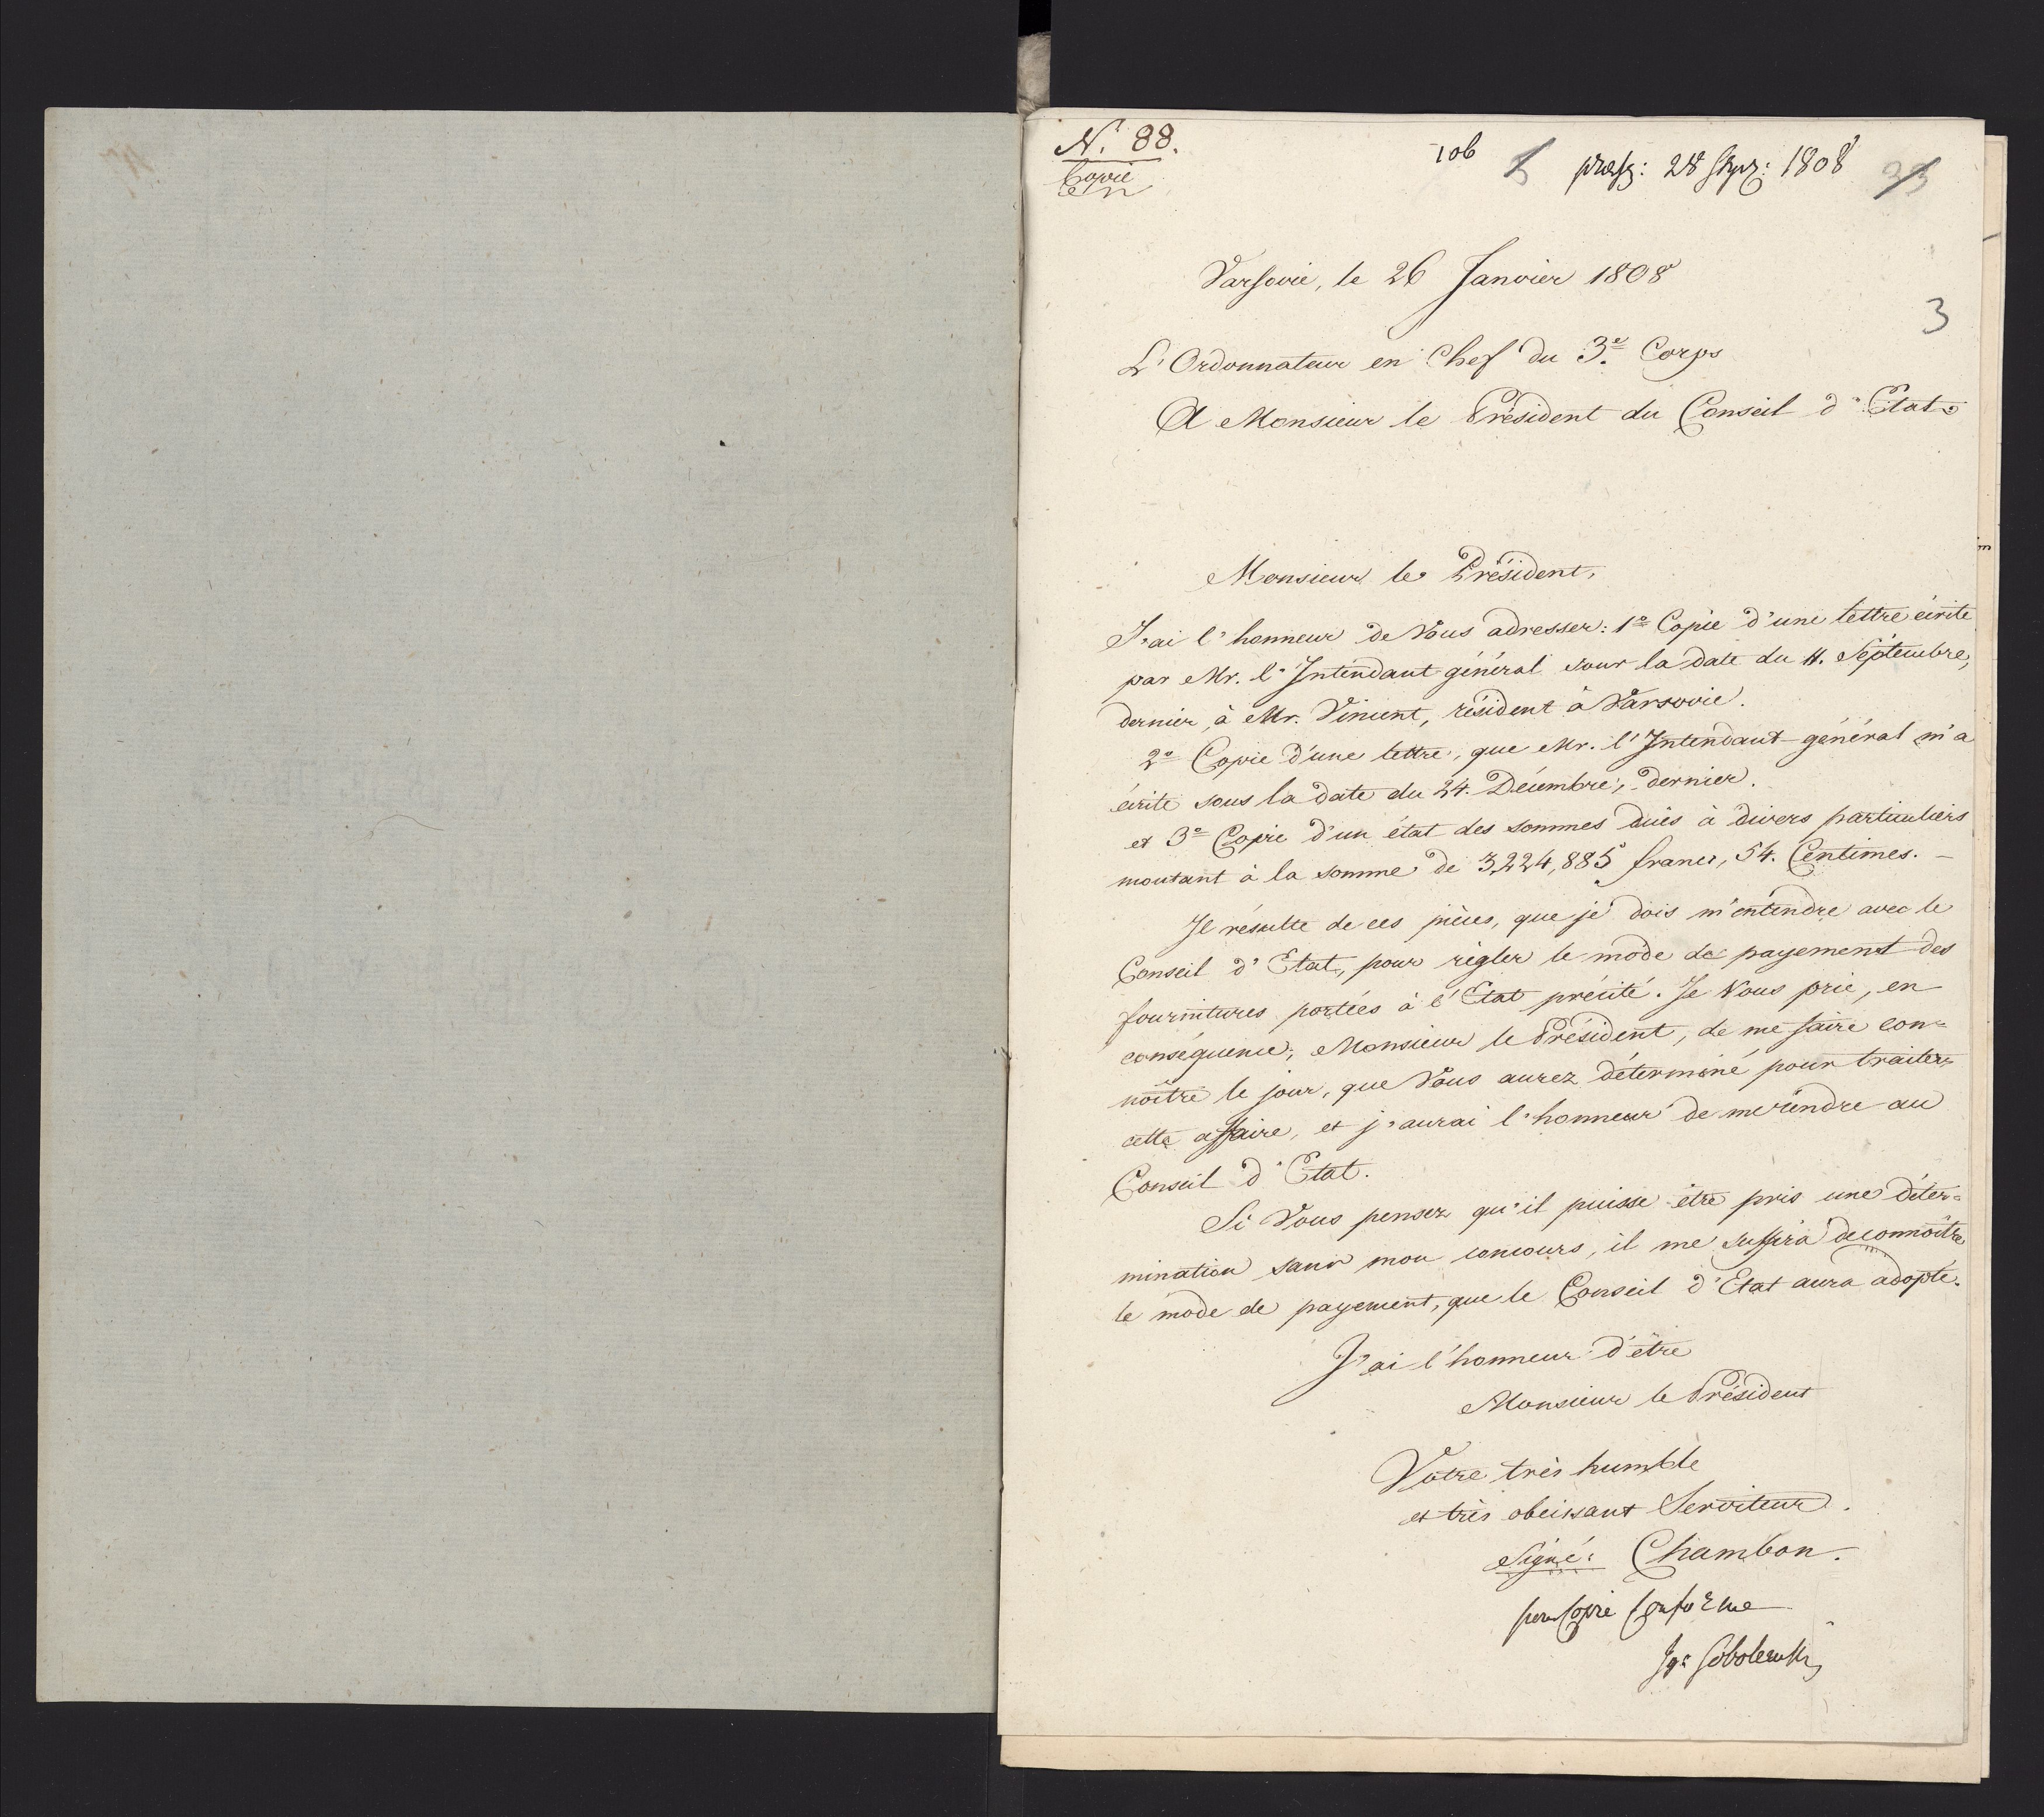 N. 88.
Copie
106 5 praes: 28 Stycz: 1808 33
Varsovie, le 26 Janvier 1808
3
L'Ordonnateur en Chef du 3e. Corps
A Monsieur le Président du Conseil d'Etat
Monsieur le Président,
J'ai l'honneur de Vous adresser: 1o Copie d'une lettre écrite
par Mr. l'Intendant général sous la date du 11. Septembre,
dernier, à Mr. Vincent, résident à Varsovie.
2o Copie d'une lettre, que Mr. l'Intendant général m'a
écrite sous la date du 24. Décembre, dernier.
et 3o Copie d'un état des sommes dûes à divers particuliers
montant à la somme de 3,224,885 francs, 54. Centimes. —
Il résulte de ces pièces, que je dois m'entendre avec le
Conseil d'Etat, pour régler le mode de payement des
fournitures portées à l'Etat précité. Je Vous prie, en
conséquence, Monsieur le Président, de me faire con=
noître le jour, que Vous aurez déterminé pour traiter
cette affaire, et j'aurai l'honneur de me rendre au
Conseil d'Etat.
Si Vous pensez qu'il puisse être pris une déter=
mination sans mon concours, il me suffira de connoître
le mode de payement, que le Conseil d'Etat aura adopté.
J'ai l'honneur d'être
Monsieur le Président
Votre très humble
et très obeissant Serviteur.
Signé: Chambon.
pour Copie Conforme
Ig: Sobolewski